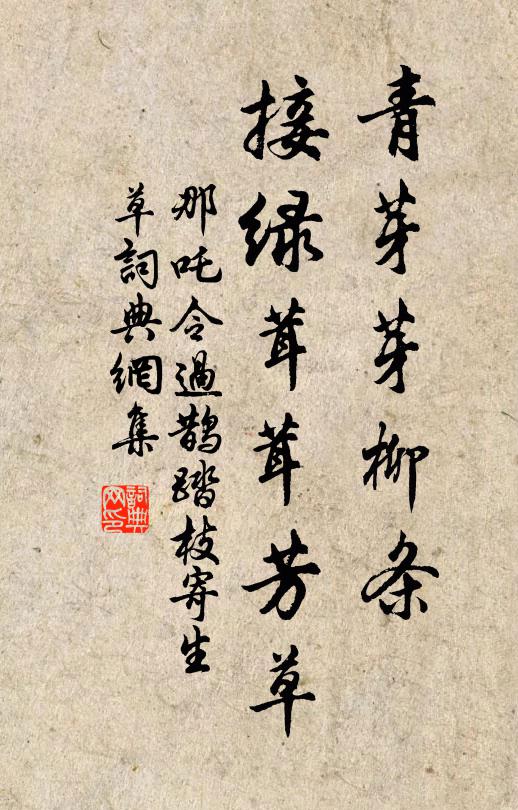 青芽芽柳条
接绿茸茸芳草
那吒令過鵲踏枝寄生
草詞典網集
詞典
网印